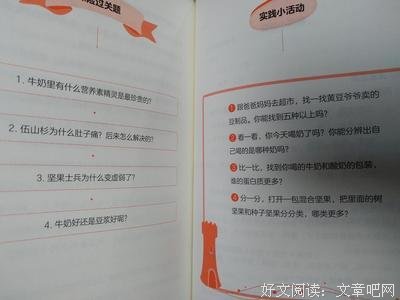 过关题
1. 牛奶里有什么营养素精灵是最珍贵的?
2. 伍山杉为什么肚子痛? 后来怎么解决的?
3. 坚果士兵为什么变虚弱了?
4. 牛奶好还是豆浆好呢?
实践小活动
1 跟爸爸妈妈去超市，找一找黄豆爷爷卖的
豆制品。你能找到五种以上吗?
2 看一看，你今天喝奶了吗? 你能分辨出自
己喝的是哪种奶吗?
3 比一比，找到你喝的牛奶和酸奶的包装，
谁的蛋白质更多?
4 分一分，打开一包混合坚果，把里面的树
坚果和种子坚果分分类，哪类更多?
好文阅读：文章吧网